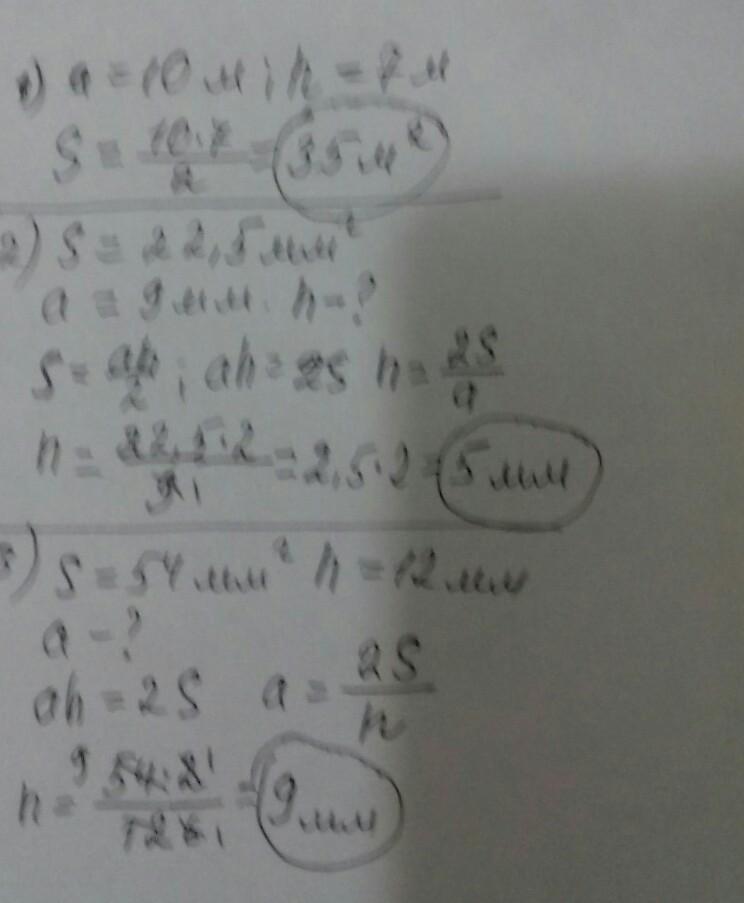 1) a = 10 м; h = 7 м
S = 10·7/2 = 35 м²
2) S = 22,5 мм²
a = 9 мм. h - ?
S = ah/2; ah = 2S h = 2S/a
h = 22,5·2/9 1 = 2,5·2 = 5 мм
3) S = 54 мм² h = 12 мм
a - ?
ah = 2S a = 2S/h
h = 9 54·2 1/12 6 1 = 9 мм